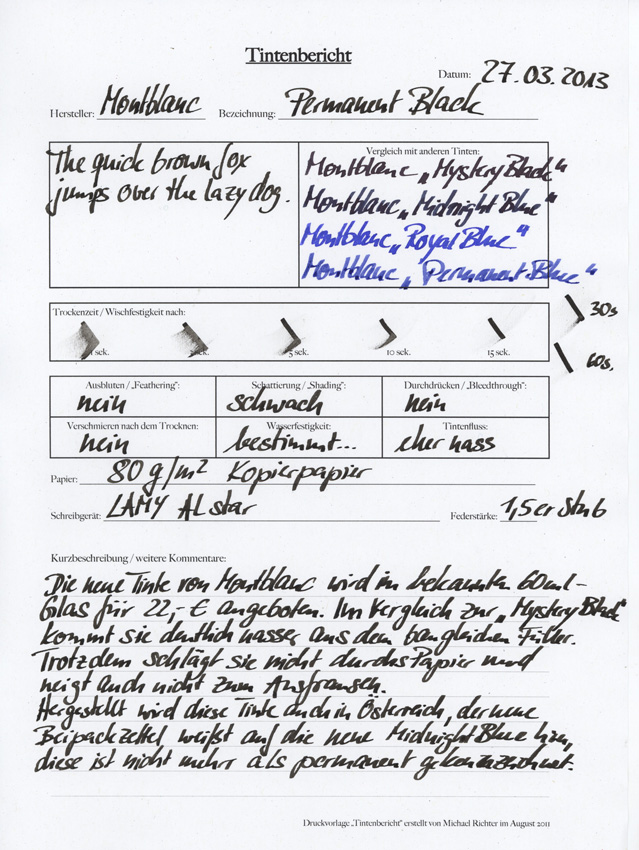 Tintenbericht
Datum: 27.03.2013
Hersteller: Montblanc Bezeichnung: Permanent Black
The quick brown fox
jumps over the lazy dog.
Vergleich mit anderen Tinten:
Montblanc „Mystery Black“
Montblanc „Midnight Blue“
Montblanc „Royal Blue“
Montblanc „Permanent Blue“
Trockenzeit / Wischfestigkeit nach:
1 sek. 2 sek. 5 sek. 10 sek. 15 sek. 30s
60s.
Ausbluten / „Feathering“: Schattierung / „Shading“: Durchdrücken / „Bleedthrough“:
nein schwach nein
Verschmieren nach dem Trocknen: Wasserfestigkeit: Tintenfluss:
nein bestimmt... eher nass
Papier: 80 g/m² Kopierpapier
Schreibgerät: LAMY Al star Federstärke: 1,5er Stub
Kurzbeschreibung / weitere Kommentare:
Die neue Tinte von Montblanc wird im bekannten 60ml-
Glas für 22,- € angeboten. Im Vergleich zur „Mystery Black“
kommt sie deutlich nasser aus dem baugleichen Füller.
Trotzdem schlägt sie nicht durchs Papier und
neigt auch nicht zum Ausfransen.
Hergestellt wird diese Tinte auch in Österreich, der neue
Beipackzettel weißt auf die neue Midnight Blue hin,
diese ist nicht mehr als permanent gekennzeichnet.
Druckvorlage „Tintenbericht“ erstellt von Michael Richter im August 2011